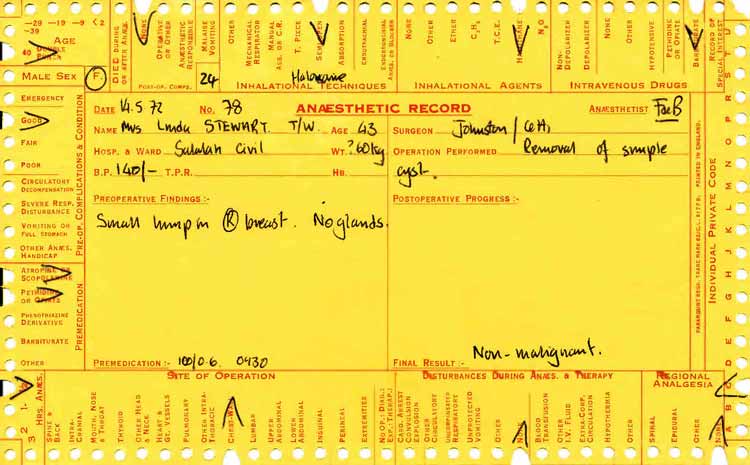 -29 -19 -9 <2
-39
AGE
40
MALE SEX F.
DIED DURING OR AFTER ANÆS.
NONE
OPERATIVE OR OTHER
ANÆSTHETIC RESPONSIBLE
MALAISE VOMITING
OTHER
POST-OP. COMPS.
24
MECHANICAL RESPIRATOR
MANUAL ASS. OR C.R.
T. PIECE
ABSORPTION
ENDOTRACHEAL
INHALATIONAL TECHNIQUES
NONE
OTHER
ETHER
C₂H₄
T.C.E.
N₂O
INHALATIONAL AGENTS
NON-DEPOLARIZER
DEPOLARIZER
NONE
OTHER
HYPOTENSIVE
PETHIDINE OR OPIATE
BARBITURATE
INTRAVENOUS DRUGS
RECORD OF SPECIAL INTEREST
DATE 14.5.72 No. 78 ANÆSTHETIC RECORD ANÆSTHETIST
NAME Mrs Linda STEWART. T/W. AGE 43 SURGEON Johnston /
HOSP. & WARD Salalah Civil WT. ?60kg OPERATION PERFORMED Removal of simple
B.P. 140/- T.P.R. HB. cyst.
PREOPERATIVE FINDINGS :- POSTOPERATIVE PROGRESS :-
Small lump in (R) breast. No glands.
Non-malignant.
PREMEDICATION :- 100/0.6. 0930 FINAL RESULT :-
EMERGENCY
GOOD
FAIR
POOR
CIRCULATORY DECOMPENSATION
SEVERE RESP. DISTURBANCE
VOMITING OR FULL STOMACH
OTHER ANÆS. HANDICAP
PRE-OP. COMPLICATIONS & CONDITION
ATROPINE OR SCOPOLAMINE
PETHIDINE OR OPIATE
PHENOTHIAZINE DERIVATIVE
BARBITURATE
OTHER
PREMEDICATION
INDIVIDUAL PRIVATE CODE
A B C D E F G H I J K L M N O P R S T U
3 2 1 HRS. ANÆS.
SITE OF OPERATION
SPINE & BACK
INTRA-CRANIAL
MOUTH, NOSE & THROAT
THYROID
OTHER HEAD & NECK
HEART & GT. VESSELS
PULMONARY
OTHER INTRA-THORACIC
CHEST-WALL
LUMBAR
UPPER ABDOMINAL
LOWER ABDOMINAL
INGUINAL
PERINEAL
EXTREMITIES
NO OP.: DIAG.: EXP.: THERAP.:
DISTURBANCES DURING ANÆS. & THERAPY
CARD. ARREST CONVULSION EXPLOSION
OTHER CIRCULATORY
UNDERPINNATED RESPIRATORY
UNPROTECTED VOMITING
OTHER
NONE
BLOOD TRANSFUSION
OTHER I.V. FLUID
EXTRA-CORP. CIRCULATION
HYPOTHERMIA
OTHER
REGIONAL ANALGESIA
SPINAL
EPIDURAL
OTHER
NONE